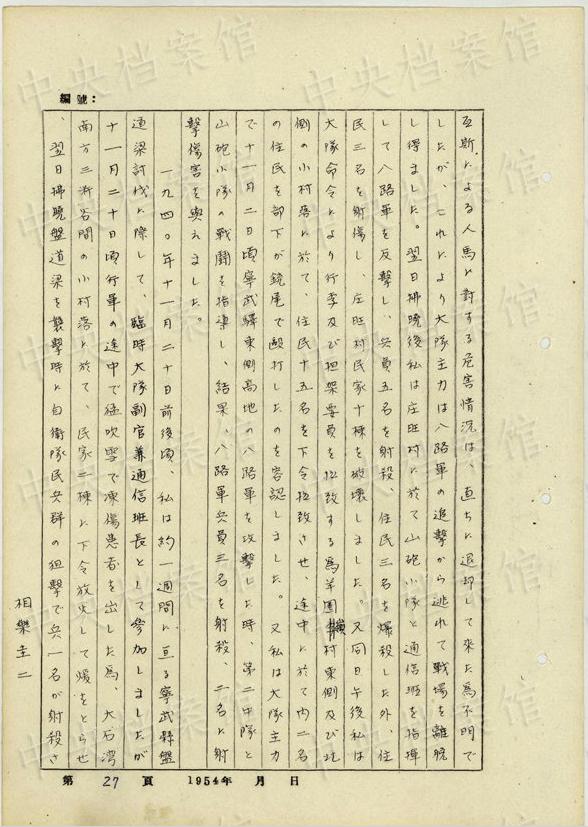 編號：
瓦斯による人馬に対する危害情況は、直ちに退却して来た為不明で
したが、これにより大隊主力は八路軍の追撃から逃れて戦場を離脱
し得ました。翌日拂曉後私は庄旺村に於て山砲小隊と通信班を指揮
して八路軍を反撃し、兵員五名を射殺、住民三名を爆殺した外、住
民三名を射傷し、庄旺村民家十棟を破壊しました。又同日午後私は
大隊命令により行李及び担架要員を拉致する為羊圏村東側及び北
側の小村落に於て、住民十五名を下令拉致させ、途中に於て内二名
の住民を部下が銃尾で毆打したのを容認しました。又私は大隊主力
で十一月二日頃寧武驛東側高地の八路軍を攻撃した時、第二中隊と
山砲小隊の戦闘を指導し、結果、八路軍兵員三名を射殺、二名に射
撃傷害を與えました。
一九四〇年十一月二十日前後頃、私は約一週間に亘る寧武縣盤
道梁討伐に際して、臨時大隊副官兼通信班長として参加しましたが
十一月二十日頃行軍の途中で極吹雪で凍傷患者を出した為、大石湾
南方三粁谷間の小村落に於て、民家二棟に下令放火して煖をとらせ
、翌日拂曉盤道梁を襲撃時に自衛隊民兵群の狙撃で兵一名が射殺さ
相樂圭二
第 27 頁 1954年 月 日
中央档案馆